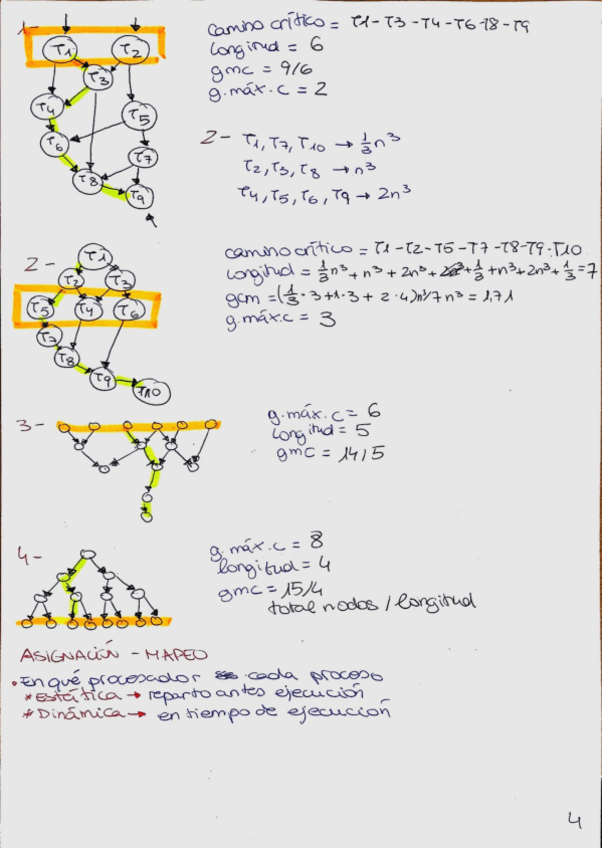 1-
T1 T2
T3
T4
T5
T6
T7
T8
T9
camino crítico = T1 - T3 - T4 - T6 - T8 - T9
longitud = 6
gmc = 9/6
g.máx.c = 2
2- T1, T7, T10 → 1/3 n³
T2, T3, T8 → n³
T4, T5, T6, T9 → 2n³
2-
T1
T2 T3
T5 T4 T6
T7
T8
T9
T10
camino crítico = T1 - T2 - T5 - T7 - T8 - T9 - T10
longitud = 1/3 n³ + n³ + 2n³ + 1/3 + n³ + 2n³ + 1/3 = 7
gcm = (1/3 · 3 + 1 · 3 + 2 · 4) n³/7n³ = 1,71
g.máx.c = 3
3-
g.máx.c = 6
longitud = 5
gmc = 14/5
4-
g.máx.c = 8
longitud = 4
gmc = 15/4
total nodos / longitud
ASIGNACIÓN - MAPEO
• En qué procesador cada proceso
* Estática → reparto antes ejecución
* Dinámica → en tiempo de ejecución
4